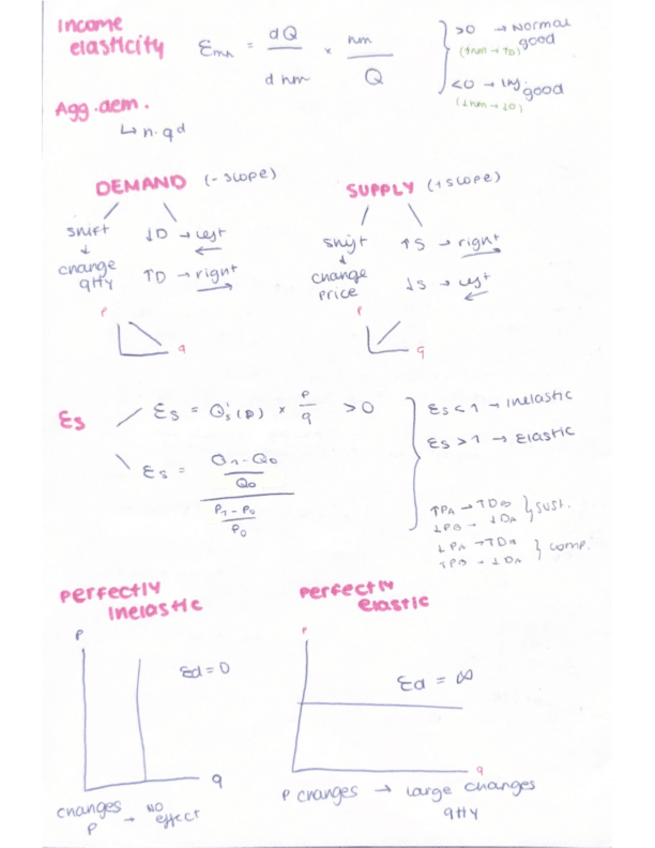 Income
elasticity
Ɛmn = dQ / dnm × nm / Q
>0 → Normal good
(↑nm → ↑D)
<0 → Inf. good
(↓nm → ↓D)
Agg. dem.
↳ n. qd
DEMAND (- slope)
shift
↓
change
qtty
↓D → left
←
↑D → right
→
P
q
SUPPLY (+ slope)
shift
↓
change
price
↑S → right
→
↓S → left
←
P
q
Ɛs
Ɛs = Q's(P) × P/q >0
Ɛs = Q1 - Q0 / Q0 / P1 - P0 / P0
Ɛs < 1 → Inelastic
Ɛs > 1 → Elastic
↑PA → ↑DB
↓PB → ↓DA
} sust.
↓PA → ↑DB
↑PB → ↓DA
} comp.
Perfectly
Inelastic
P
Ɛd = 0
q
changes
P → NO effect
Perfectly
elastic
P
Ɛd = ∞
q
P changes → large changes
qtty